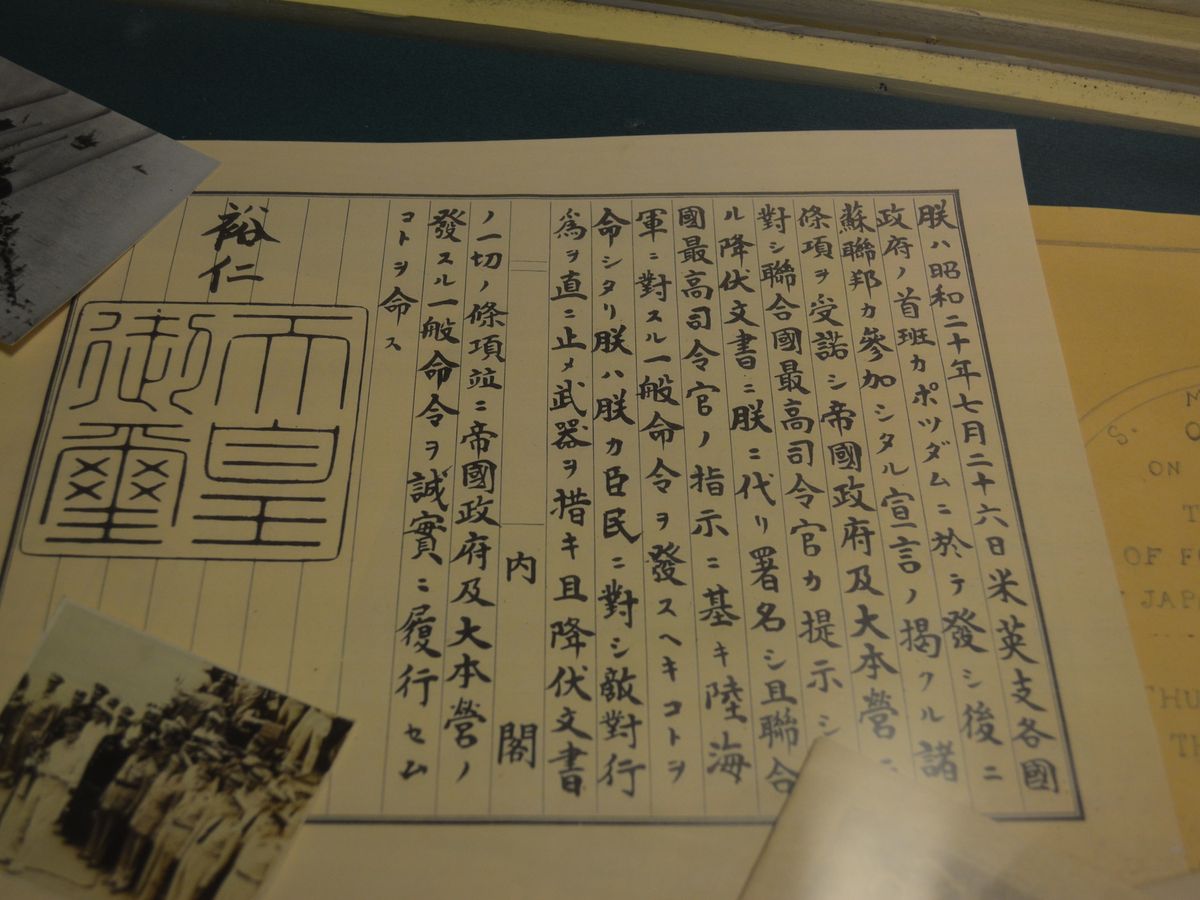 朕ハ昭和二十年七月二十六日米英支各國
政府ノ首班カポツダムニ於テ發シ後ニ
蘇聯邦カ參加シタル宣言ノ掲クル諸
條項ヲ受諾シ帝國政府及大本營ニ
對シ聯合國最高司令官カ提示シ
ル降伏文書ニ朕ニ代リ署名シ且聯合
國最高司令官ノ指示ニ基キ陸海
軍ニ對スル一般命令ヲ發スヘキコトヲ
命シタリ朕ハ朕カ臣民ニ對シ敵對行
爲ヲ直ニ止メ武器ヲ措キ且降伏文書
内閣
ノ一切ノ條項竝ニ帝國政府及大本營ノ
發スル一般命令ヲ誠實ニ履行セム
コトヲ命ス
裕仁
天皇
御璽
S.
ON
OF
JAP